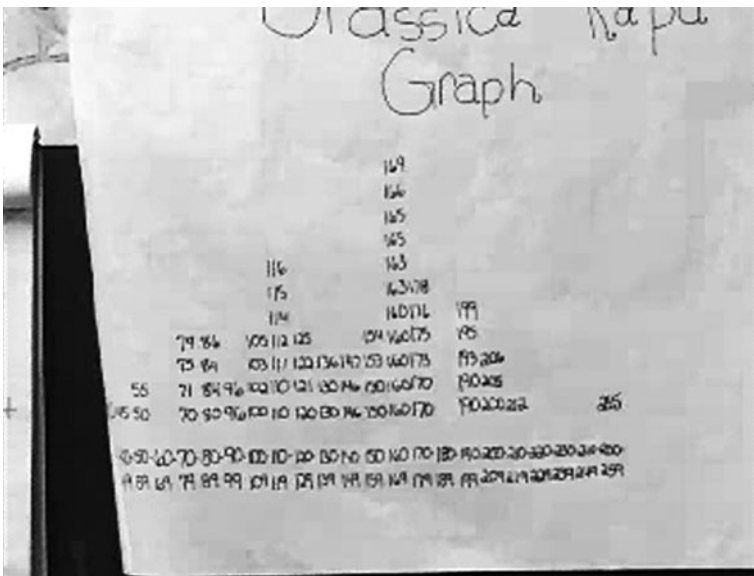 Brassica Rapa
Graph
169
166
165
165
116 163
115 163 178
114 160 176 199
79 86 105 112 125 154 160 175 195
75 84 103 111 122 136 147 153 160 173 193 206
55 71 84 96 102 110 121 130 146 150 160 170 190 205
45 50 70 80 96 100 110 120 130 146 150 160 170 190 200 212 255
50- 60- 70- 80- 90- 100 110- 120 130 140 150 160 170- 180- 190 200- 210- 220- 230- 240- 250-
59 69 79 89 99 109 119 129 139 149 159 169 179 189 199 209 219 229 239 249 259